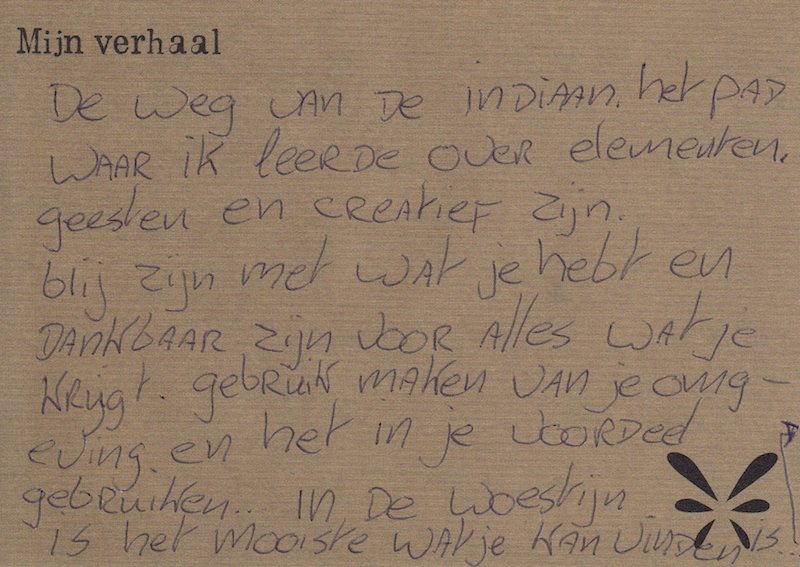 Mijn verhaal
De weg van de indiaan. het pad
waar ik leerde over elementen,
geesten en creatief zijn.
blij zijn met wat je hebt en
dankbaar zijn voor alles wat je
krijgt. gebruik maken van je omg-
eving en het in je voordeel
gebruiken.. in de woestijn
is het mooiste wat je kan vinden is...